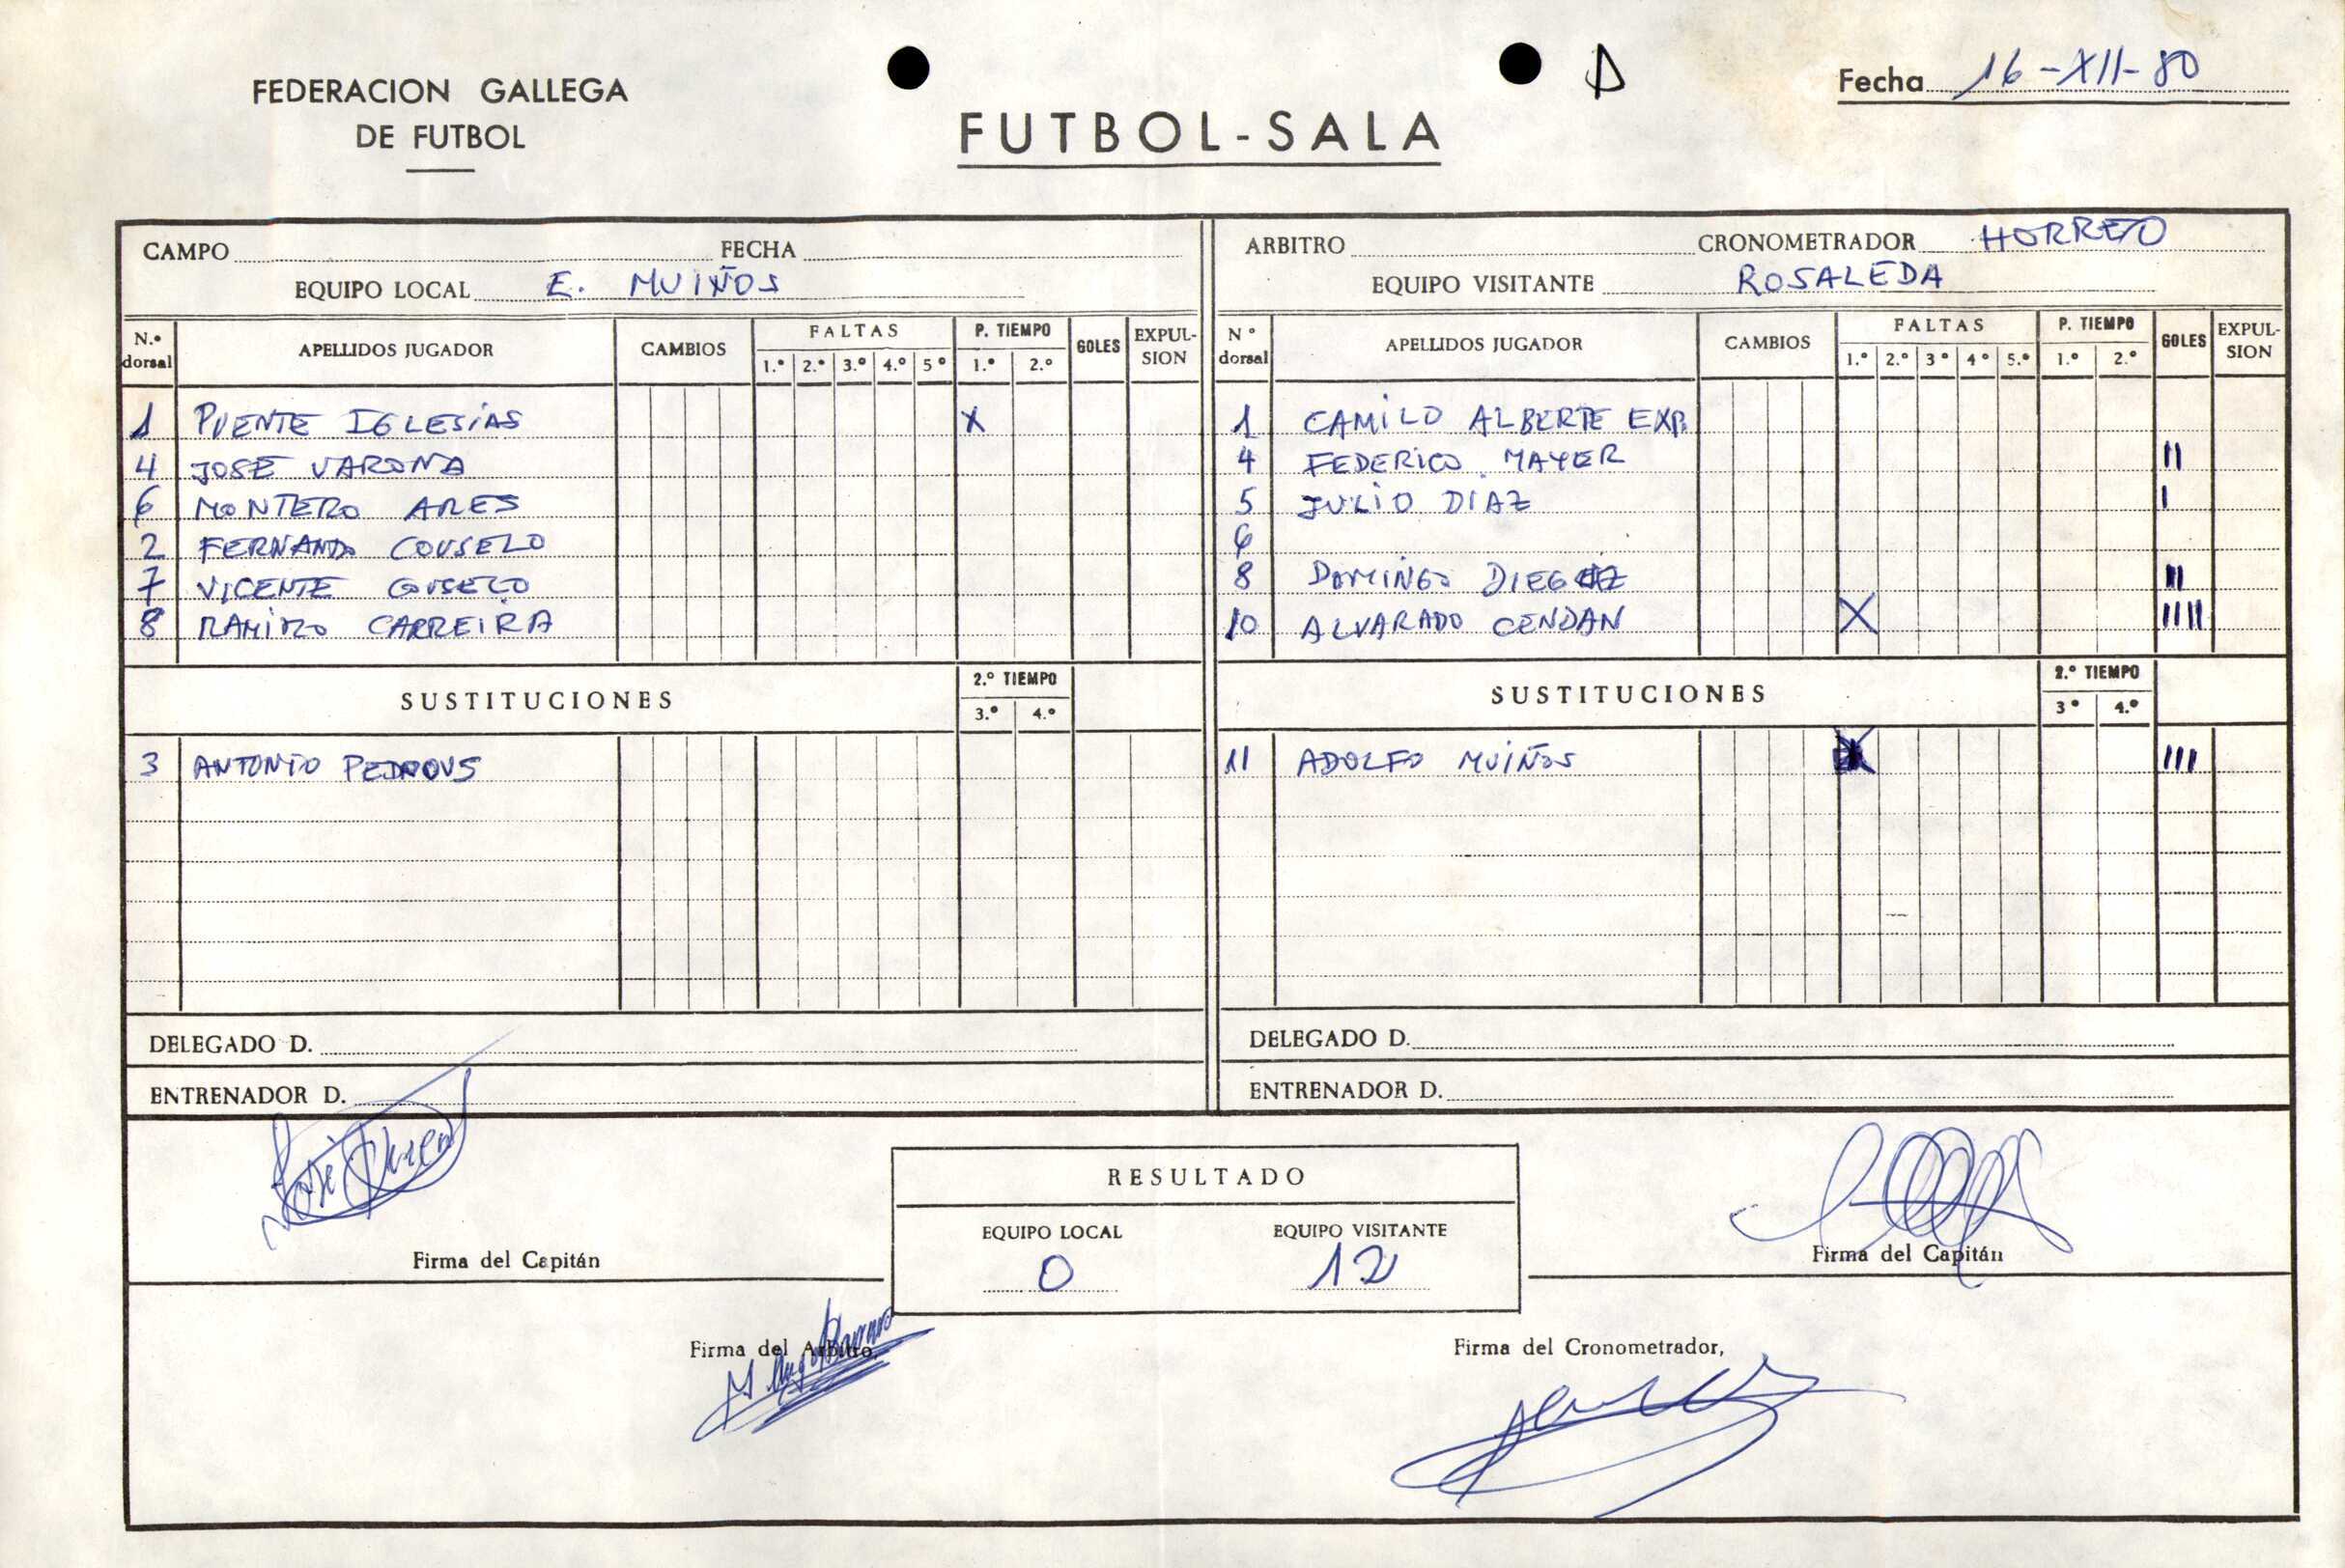 FEDERACION GALLEGA
DE FUTBOL
FUTBOL-SALA
Fecha 16-XII-80
CAMPO FECHA
EQUIPO LOCAL E. MUIÑOS
N.º dorsal APELLIDOS JUGADOR CAMBIOS FALTAS 1.º 2.º 3.º 4.º 5º P. TIEMPO 1.º 2.º GOLES EXPULSION
1 PUENTE IGLESIAS X
4 JOSE VARONA
6 MONTERO ARES
2 FERNANDO COUSELO
7 VICENTE COUSELO
8 RAMIRO CARREIRA
SUSTITUCIONES 2.º TIEMPO 3.º 4.º
3 ANTONIO
DELEGADO D.
ENTRENADOR D.
Firma del Capitán
ARBITRO CRONOMETRADOR HORRETO
EQUIPO VISITANTE ROSALEDA
Nº dorsal APELLIDOS JUGADOR CAMBIOS FALTAS 1.º 2.º 3º 4º 5.º P. TIEMPO 1.º 2.º GOLES EXPULSION
1 CAMILO ALBERTE EXP.
4 FEDERICO MAYER II
5 JULIO DIAZ I
6
8 DOMINGO II
10 ALVARADO CENDAN X IIII
SUSTITUCIONES 2.º TIEMPO 3º 4.º
11 ADOLFO MUIÑOS III
DELEGADO D.
ENTRENADOR D.
Firma del Capitán
RESULTADO
EQUIPO LOCAL EQUIPO VISITANTE
0 12
Firma del Arbitro,
Firma del Cronometrador,